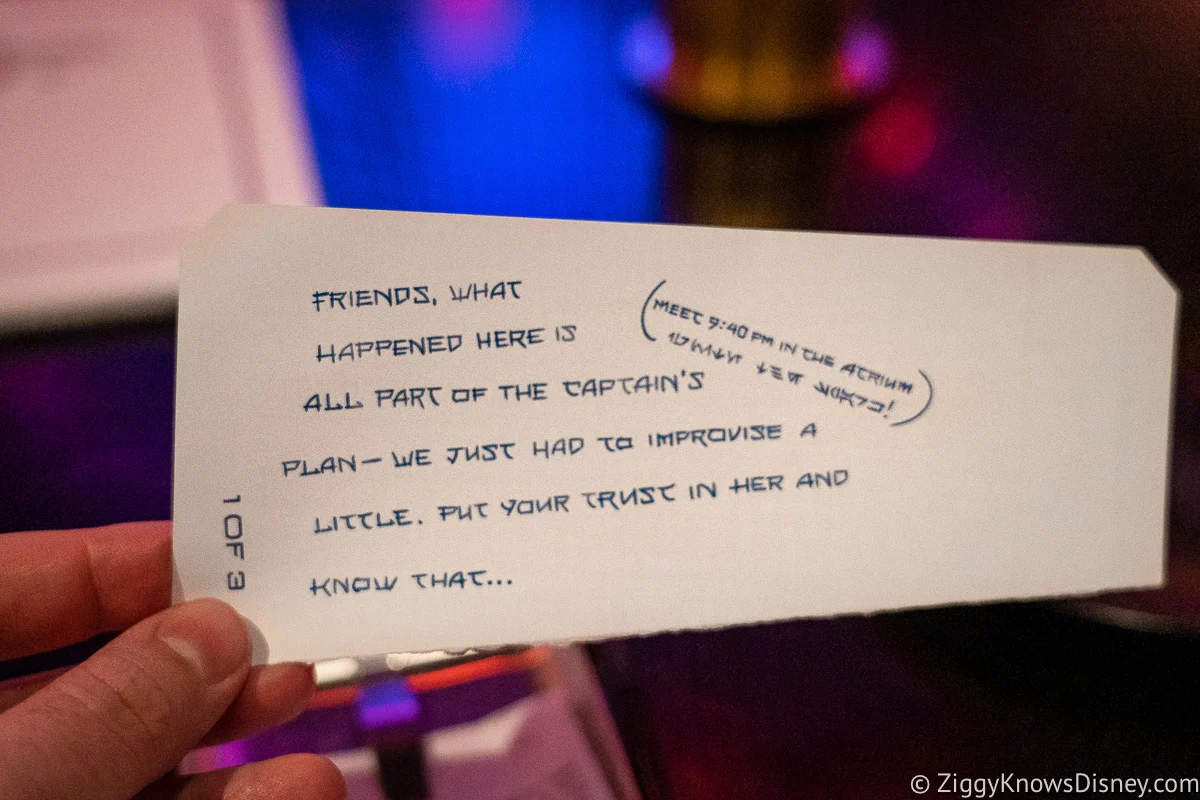 FRIENDS, WHAT
HAPPENED HERE IS
ALL PART OF THE CAPTAIN'S
PLAN— WE JUST HAD TO IMPROVISE A
LITTLE. PUT YOUR TRUST IN HER AND
KNOW THAT...
(MEET 9:40 PM IN THE ATRIUM
1 OF 3
© ZiggyKnowsDisney.com